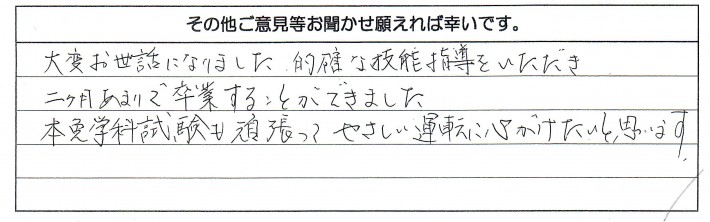 その他ご意見等お聞かせ願えれば幸いです。
大変お世話になりました 的確な技能指導をいただき
二ヶ月あまりで卒業することができました
本免学科試験も頑張って やさしい運転に心がけたいと思います